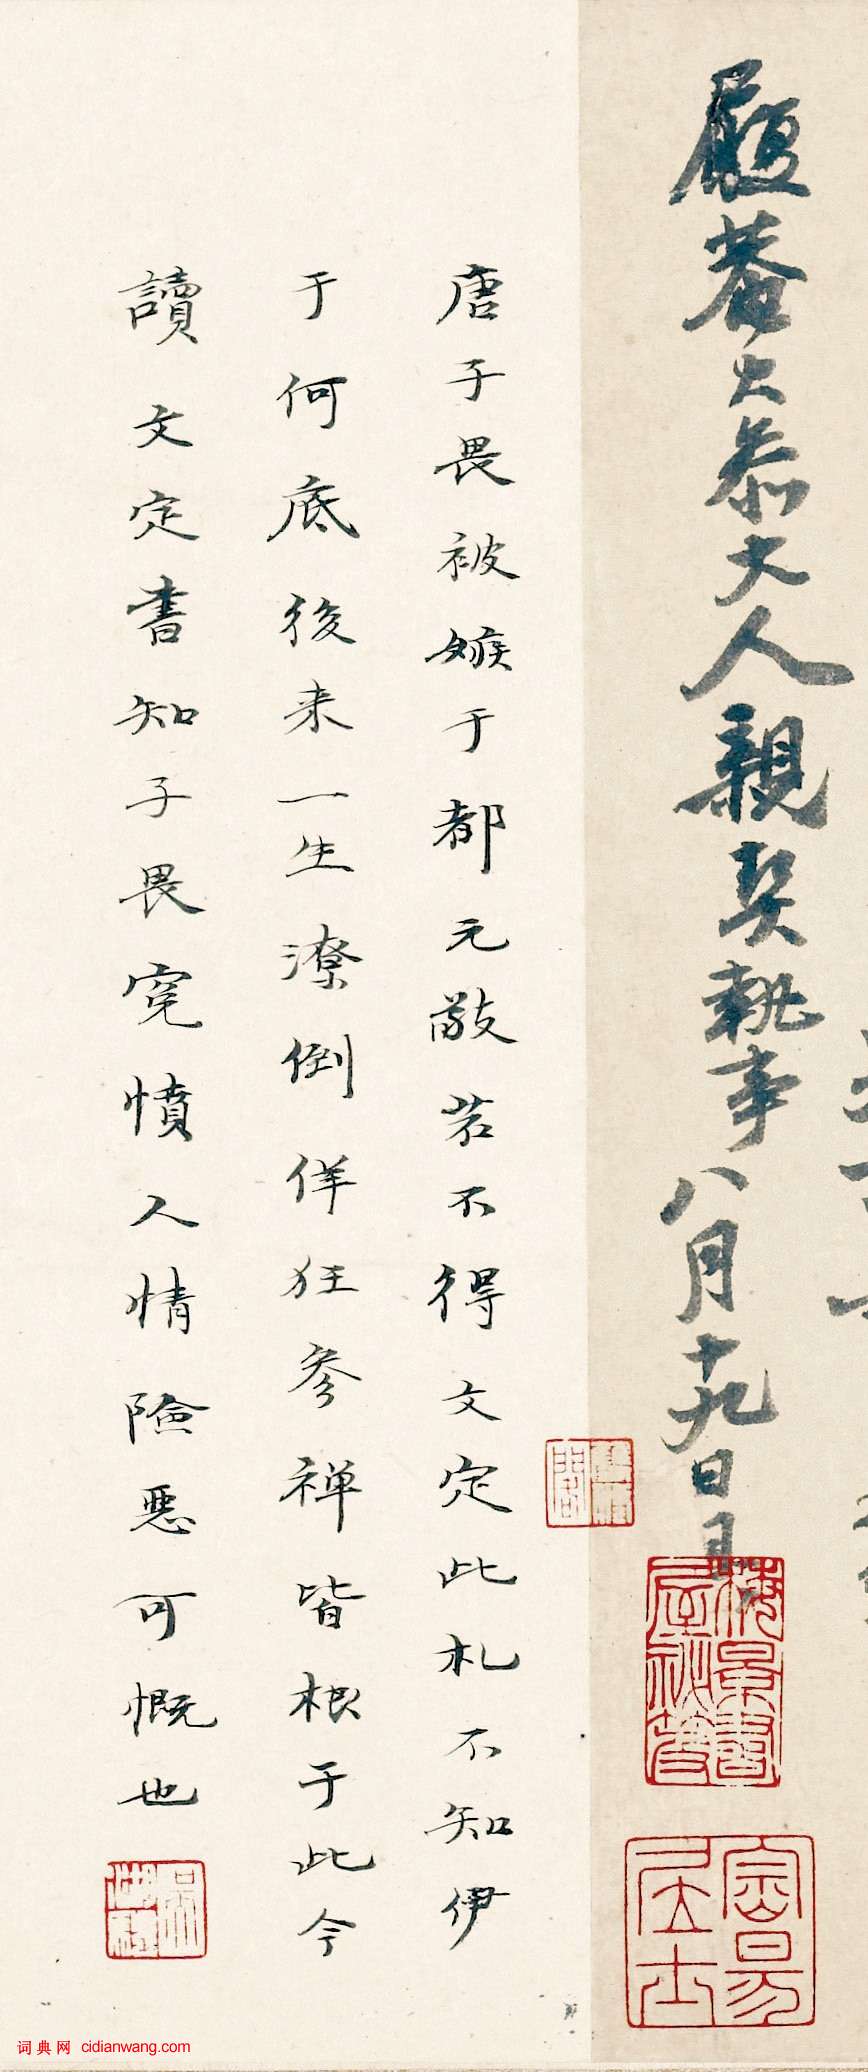 履菴大参大人親契執事八月十九日具
唐子畏被嫉于都元敬若不得文定此札不知伊
于何底後来一生潦倒佯狂參禅皆根于此今
讀文定書知子畏冤憤人情險惡可慨也
梅景書屋秘笈
詞典网 cidianwang.com